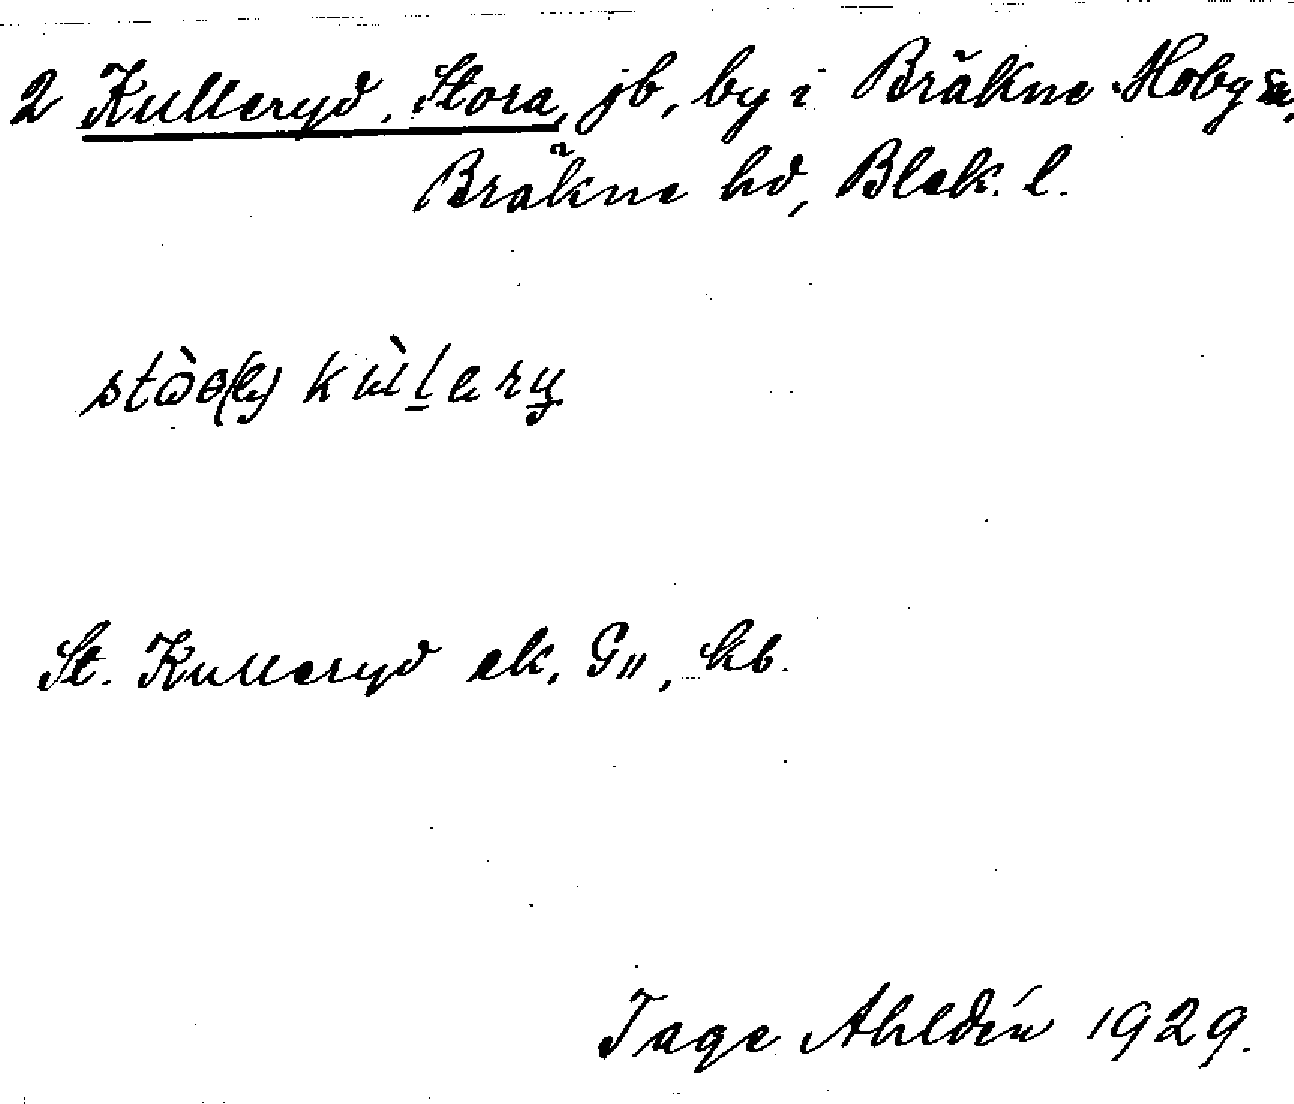 2 Kulleryd, Stora, jb, by i Bräkne-Hoby sn,
Bräkne hd, Blek. l.
St. Kulleryd ek. G11, kb.
Tage Ahldén 1929.